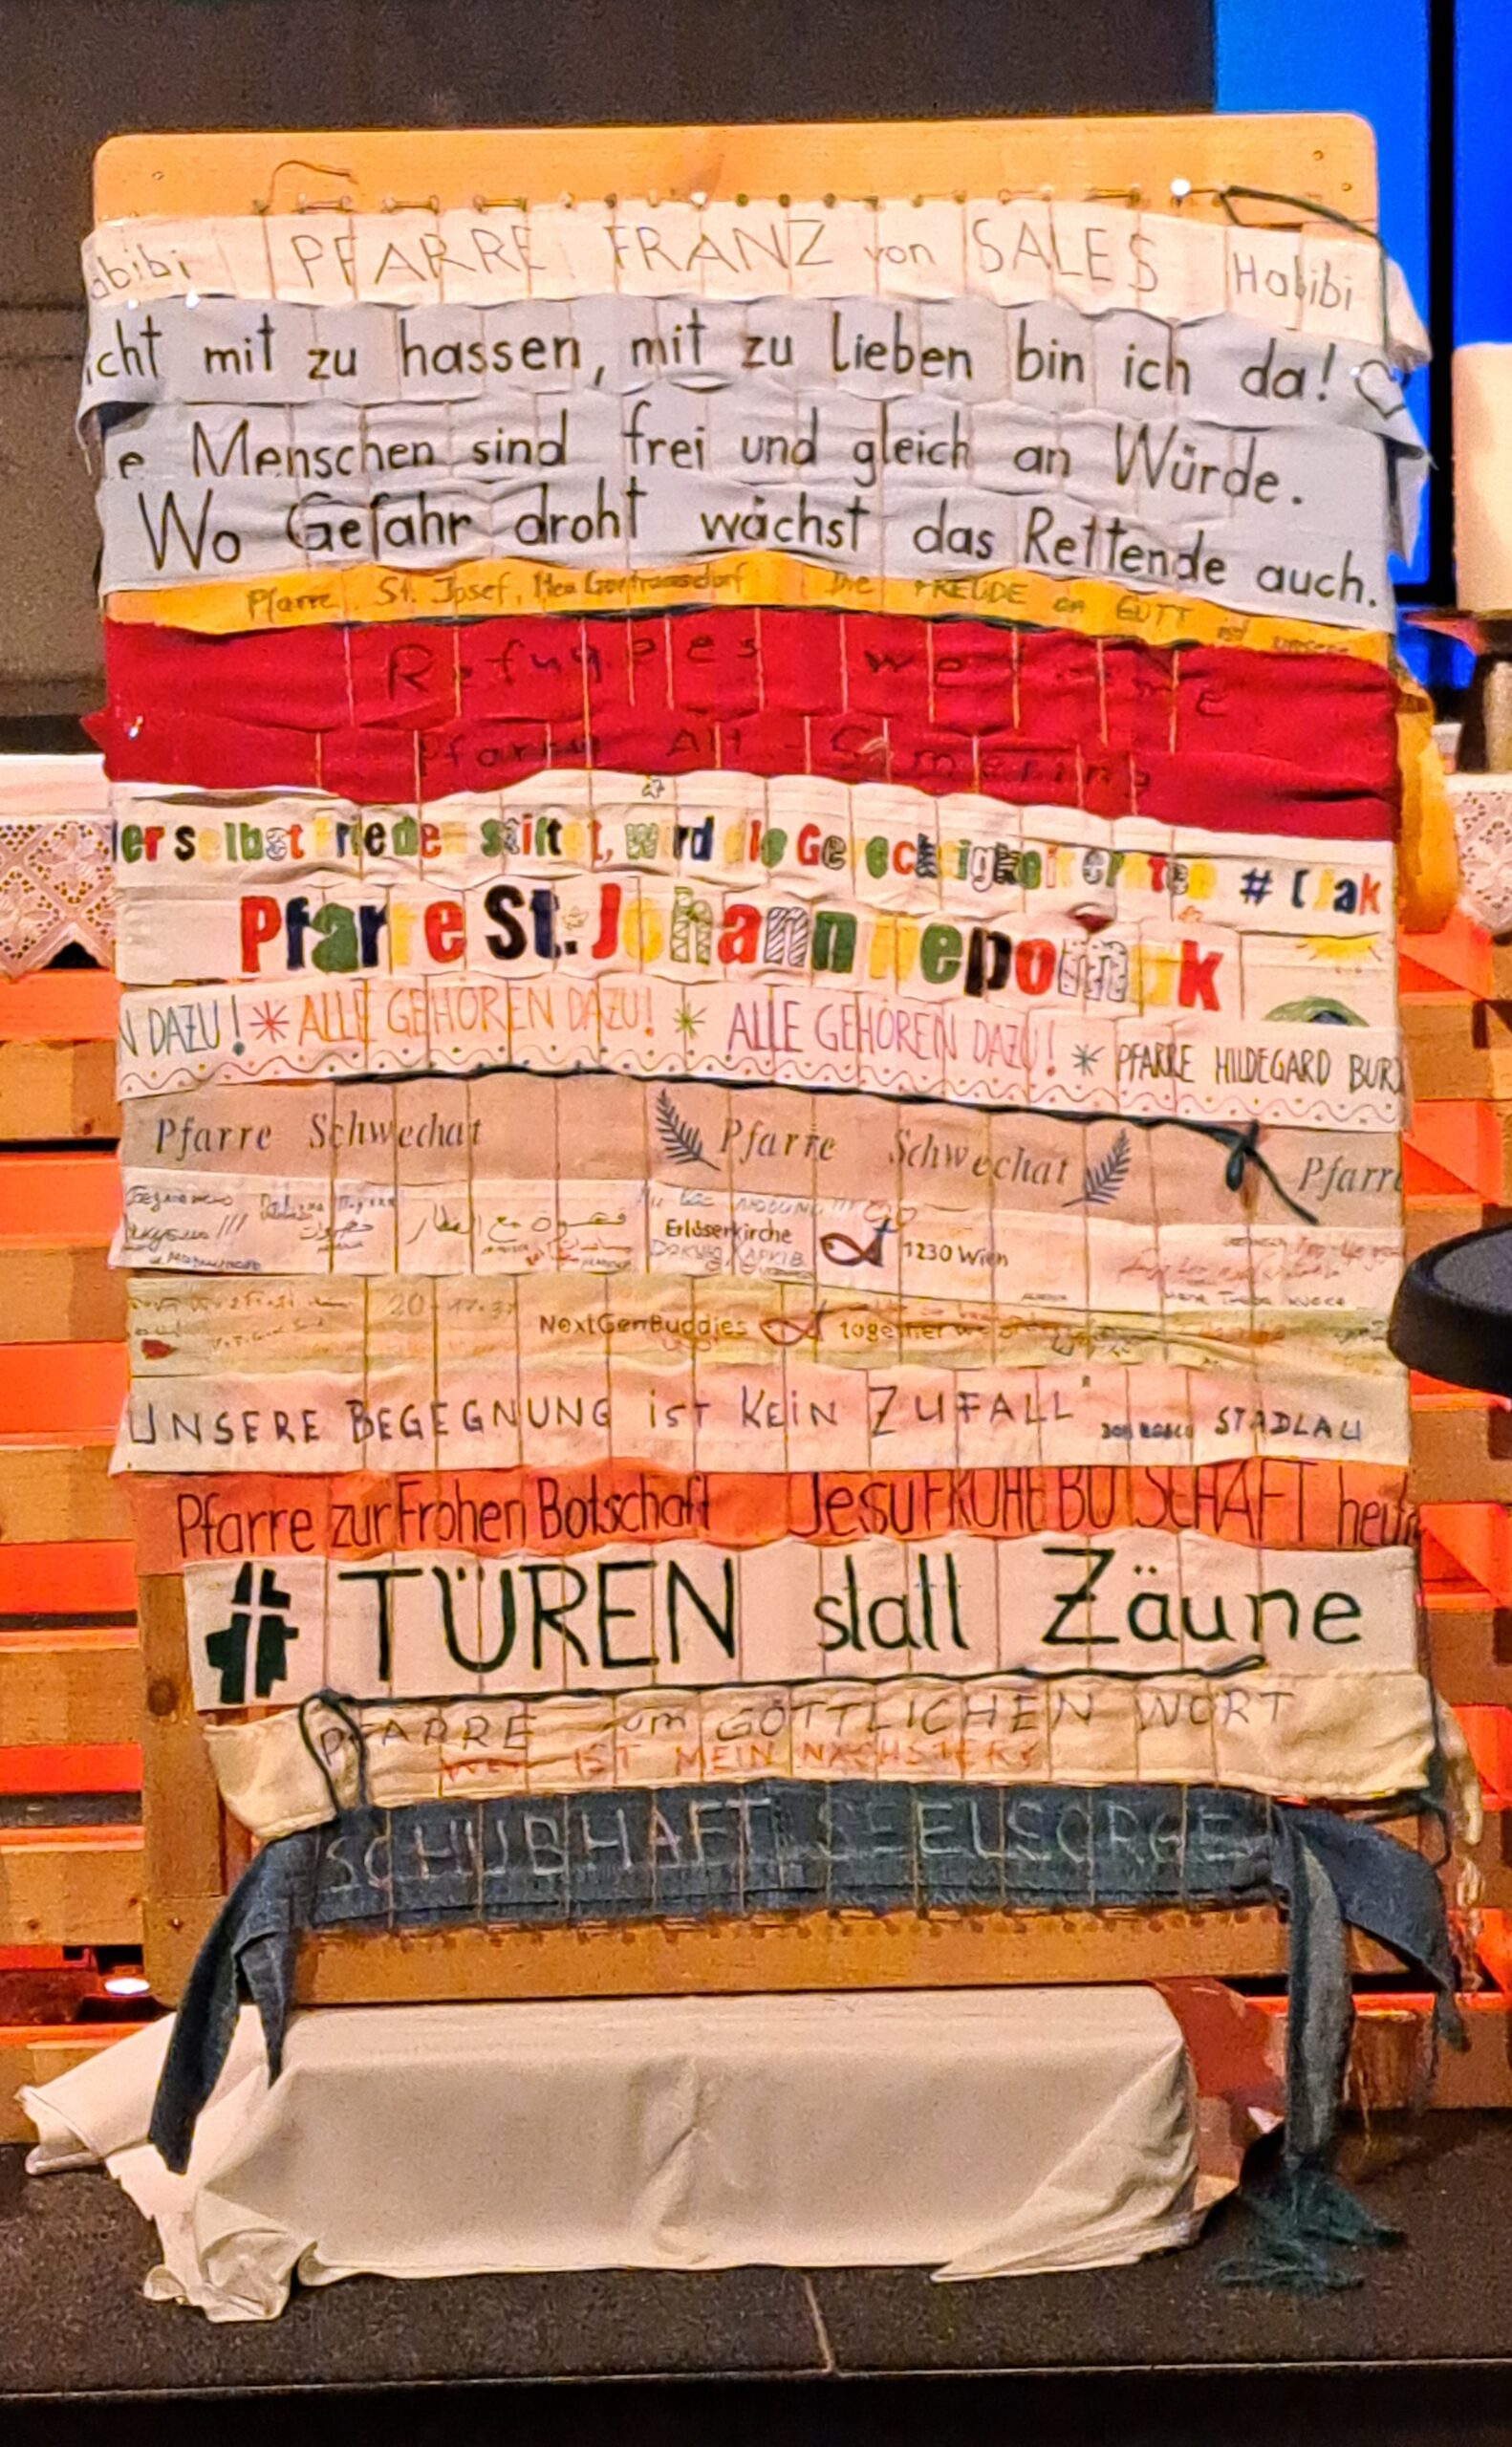 abibi PFARRE FRANZ von SALES Habibi
icht mit zu hassen, mit zu lieben bin ich da! ♡
e Menschen sind frei und gleich an Würde.
Wo Gefahr droht wächst das Rettende auch.
Pfarre St. Josef, Die FREUDE an GOTT ist unsere
Refugees welcome
Pfarre Alt-Simmering
er selbst Frieden stiftet, wird die Gerechtigkeit ernten #
Pfarre St. Johann Nepomuk
N DAZU! * ALLE GEHÖREN DAZU! * ALLE GEHÖREN DAZU! * PFARRE HILDEGARD BURJ
Pfarre Schwechat Pfarre Schwechat Pfarre
Erlöserkirche 1230 Wien
NextGenBuddies together we
UNSERE BEGEGNUNG iST KEiN ZUFALL DON BOSCO STADLAU
Pfarre zur Frohen Botschaft Jesu FROHE BOTSCHAFT heute
# TÜREN statt Zäune
PFARRE zum GÖTTLICHEN WORT
WER IST MEIN NÄCHSTER?
SCHUBHAFT SEELSORGE